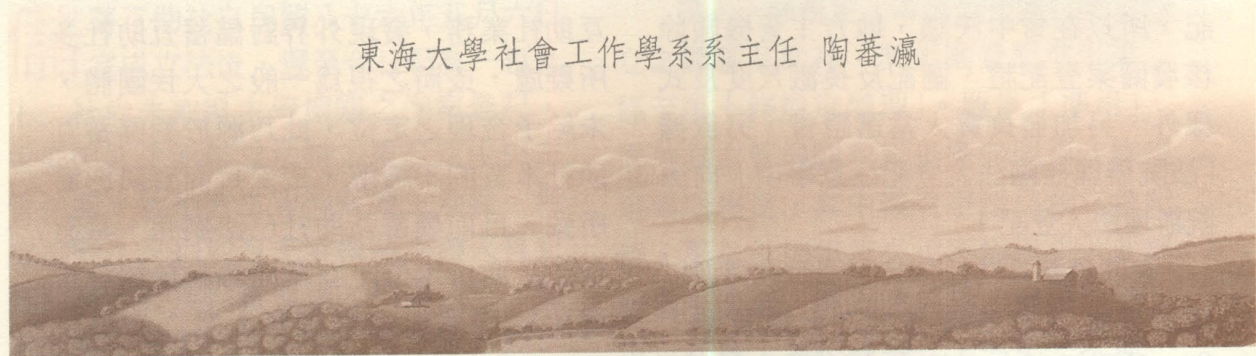 東海大學社會工作學系系主任 陶蕃瀛